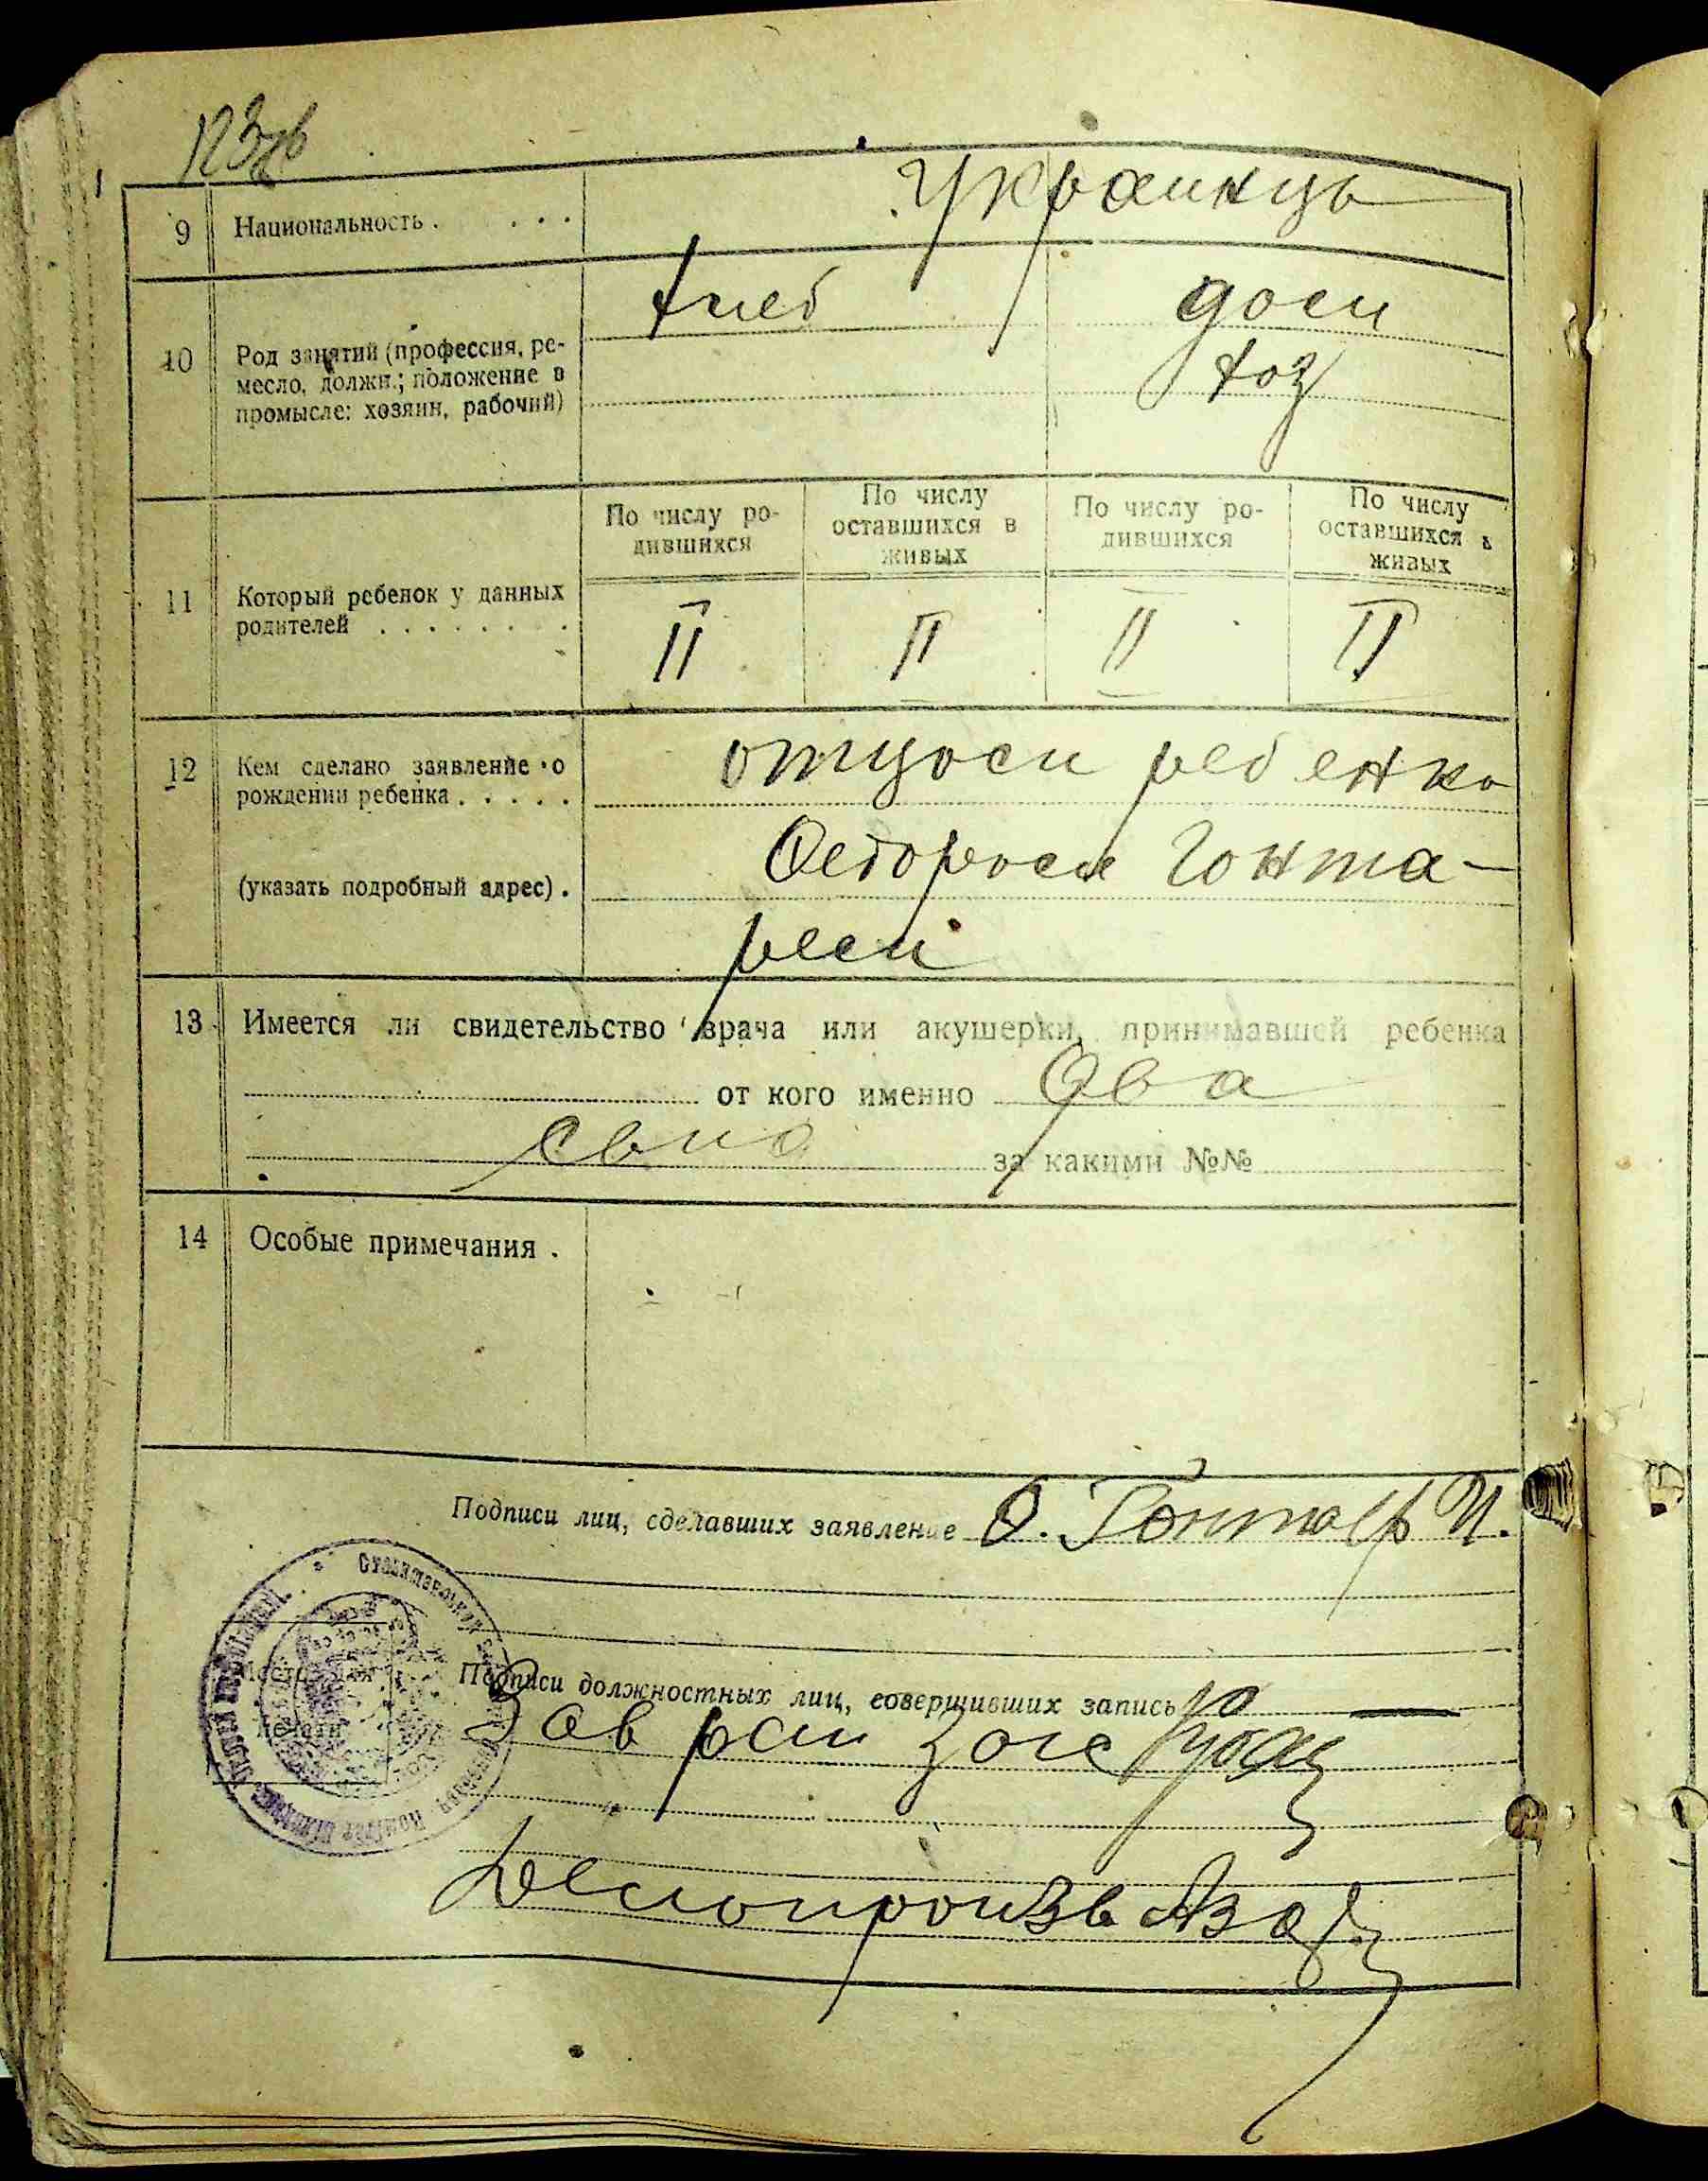 9 Национальность . . . . Украинцы
10 Род занятий (профессия, ре-
месло, должн.; положение в
промысле: хозяин, рабочий)
хлеб
дом
хоз
11 Который ребенок у данных
родителей . . . . . . . .
По числу ро-
дившихся
По числу
оставшихся в
живых
По числу ро-
дившихся
По числу
оставшихся в
живых
II II II II
12 Кем сделано заявление о
рождении ребенка . . . . .
(указать подробный адрес) .
отцом ребенка
Федором Гонта-
рем
13 Имеется ли свидетельство врача или акушерки, принимавшей ребенка
от кого именно Два
свид
за какими №№
14 Особые примечания .
Подписи лиц, сделавших заявление Ф. Гонтар И.
Место для
печати
Подписи должностных лиц, совершивших запись
Зав рай загс
Делопроизв